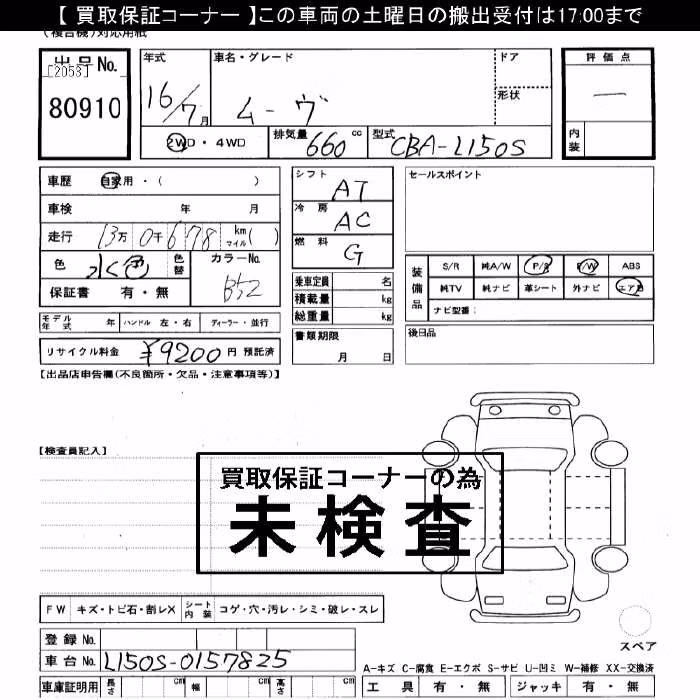 【 買取保証コーナー 】この車両の土曜日の搬出受付は17:00まで
(複合機)対応用紙
出品No.
[2053]
80910
年式
16/7月
車名・グレード
ムーヴ
ドア
形状
評価点
—
内装
2WD・4WD
排気量 660 cc
型式 CBA-L150S
車歴 自家用・( )
車検 年 月
走行 13万 0千 678 km マイル( )
色 水色
色替
カラーNo. B52
保証書 有・無
シフト AT
冷房 AC
燃料 G
乗車定員 名
積載量 kg
総重量 kg
セールスポイント
装備品
S/R 純A/W P/S P/W ABS
純TV 純ナビ 革シート 外ナビ エアB
ナビ型番:
モデル年式 年 ハンドル 左・右 ディーラー・並行
リサイクル料金 ¥9200 円 預託済
書類期限
月 日
後日品
【出品店申告欄(不良箇所・欠品・注意事項等)】
【検査員記入】
買取保証コーナーの為
未検査
FW キズ・トビ石・割レX シート内装 コゲ・穴・汚レ・シミ・破レ・スレ
登録No.
車台No. L150S-0157825
スペア
A-キズ C-腐食 E-エクボ S-サビ U-凹ミ W-補修 XX-交換済
車庫証明用 長さ cm 幅 cm 高さ cm
工具 有・無 ジャッキ 有・無